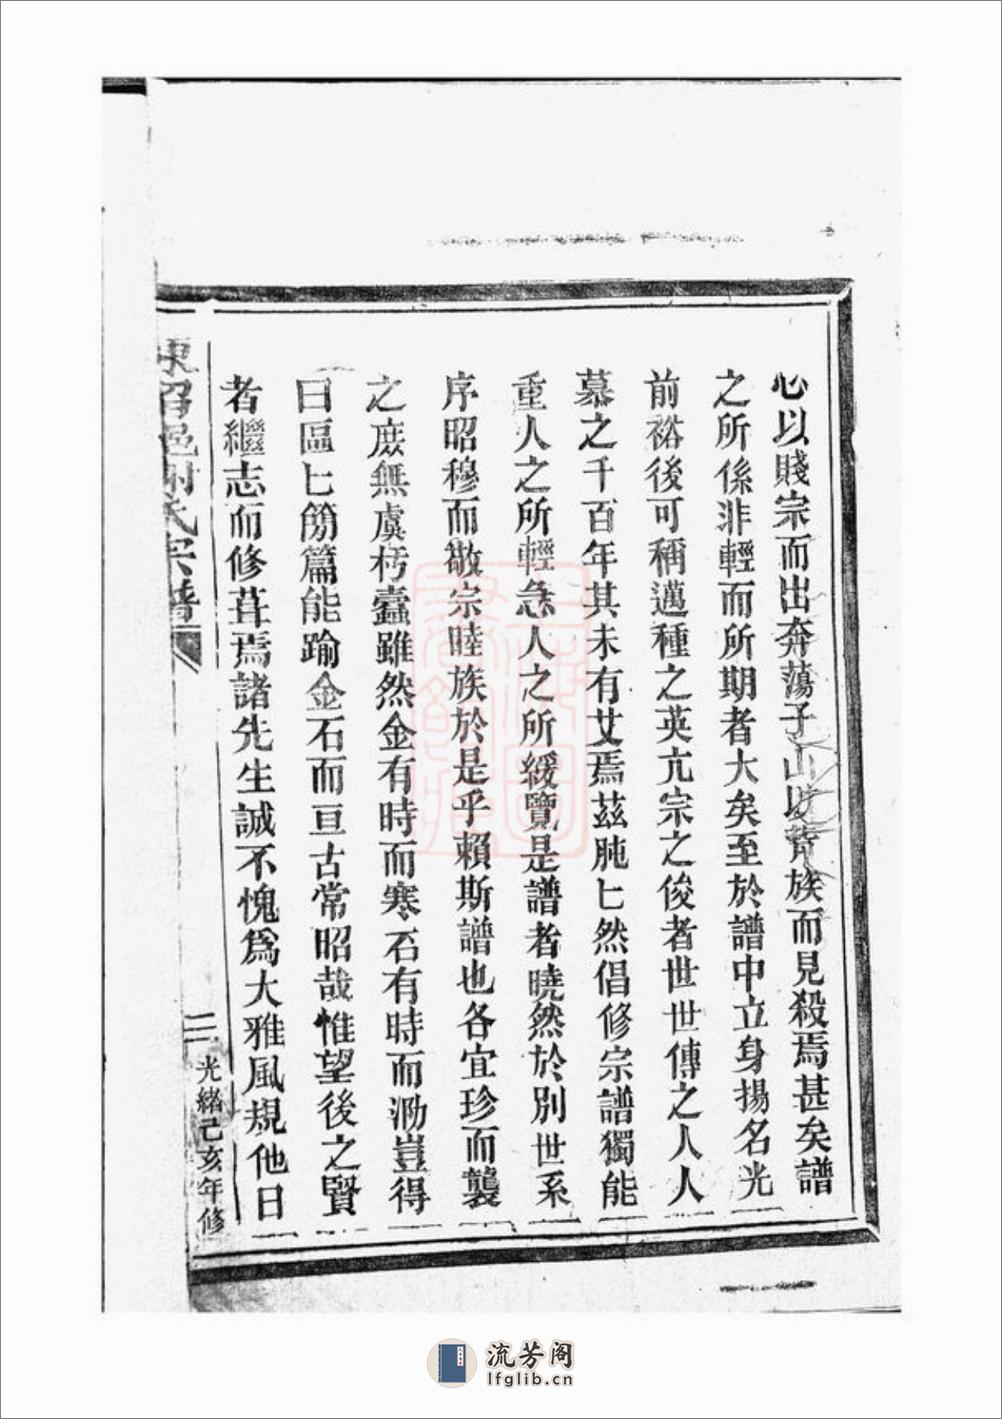 心以賤宗而出奔蕩子山以荒族而見殺焉甚矣譜
之所係非輕而所期者大矣至於譜中立身揚名光
前裕後可稱邁種之英亢宗之俊者世世傳之人人
慕之千百年其未有艾焉茲肫匕然倡修宗譜獨能
重人之所輕急人之所緩覽是譜者曉然於別世系
序昭穆而敬宗睦族於是乎賴斯譜也各宜珍而襲
之庶無虞朽蠹雖然金有時而寒石有時而泐豈得
曰區匕簡篇能踰金石而亘古常昭哉惟望後之賢
者繼志而修葺焉諸先生誠不愧爲大雅風規他日
東邑謝氏宗譜
二
光緒己亥年修
流芳阁
lfglib.cn